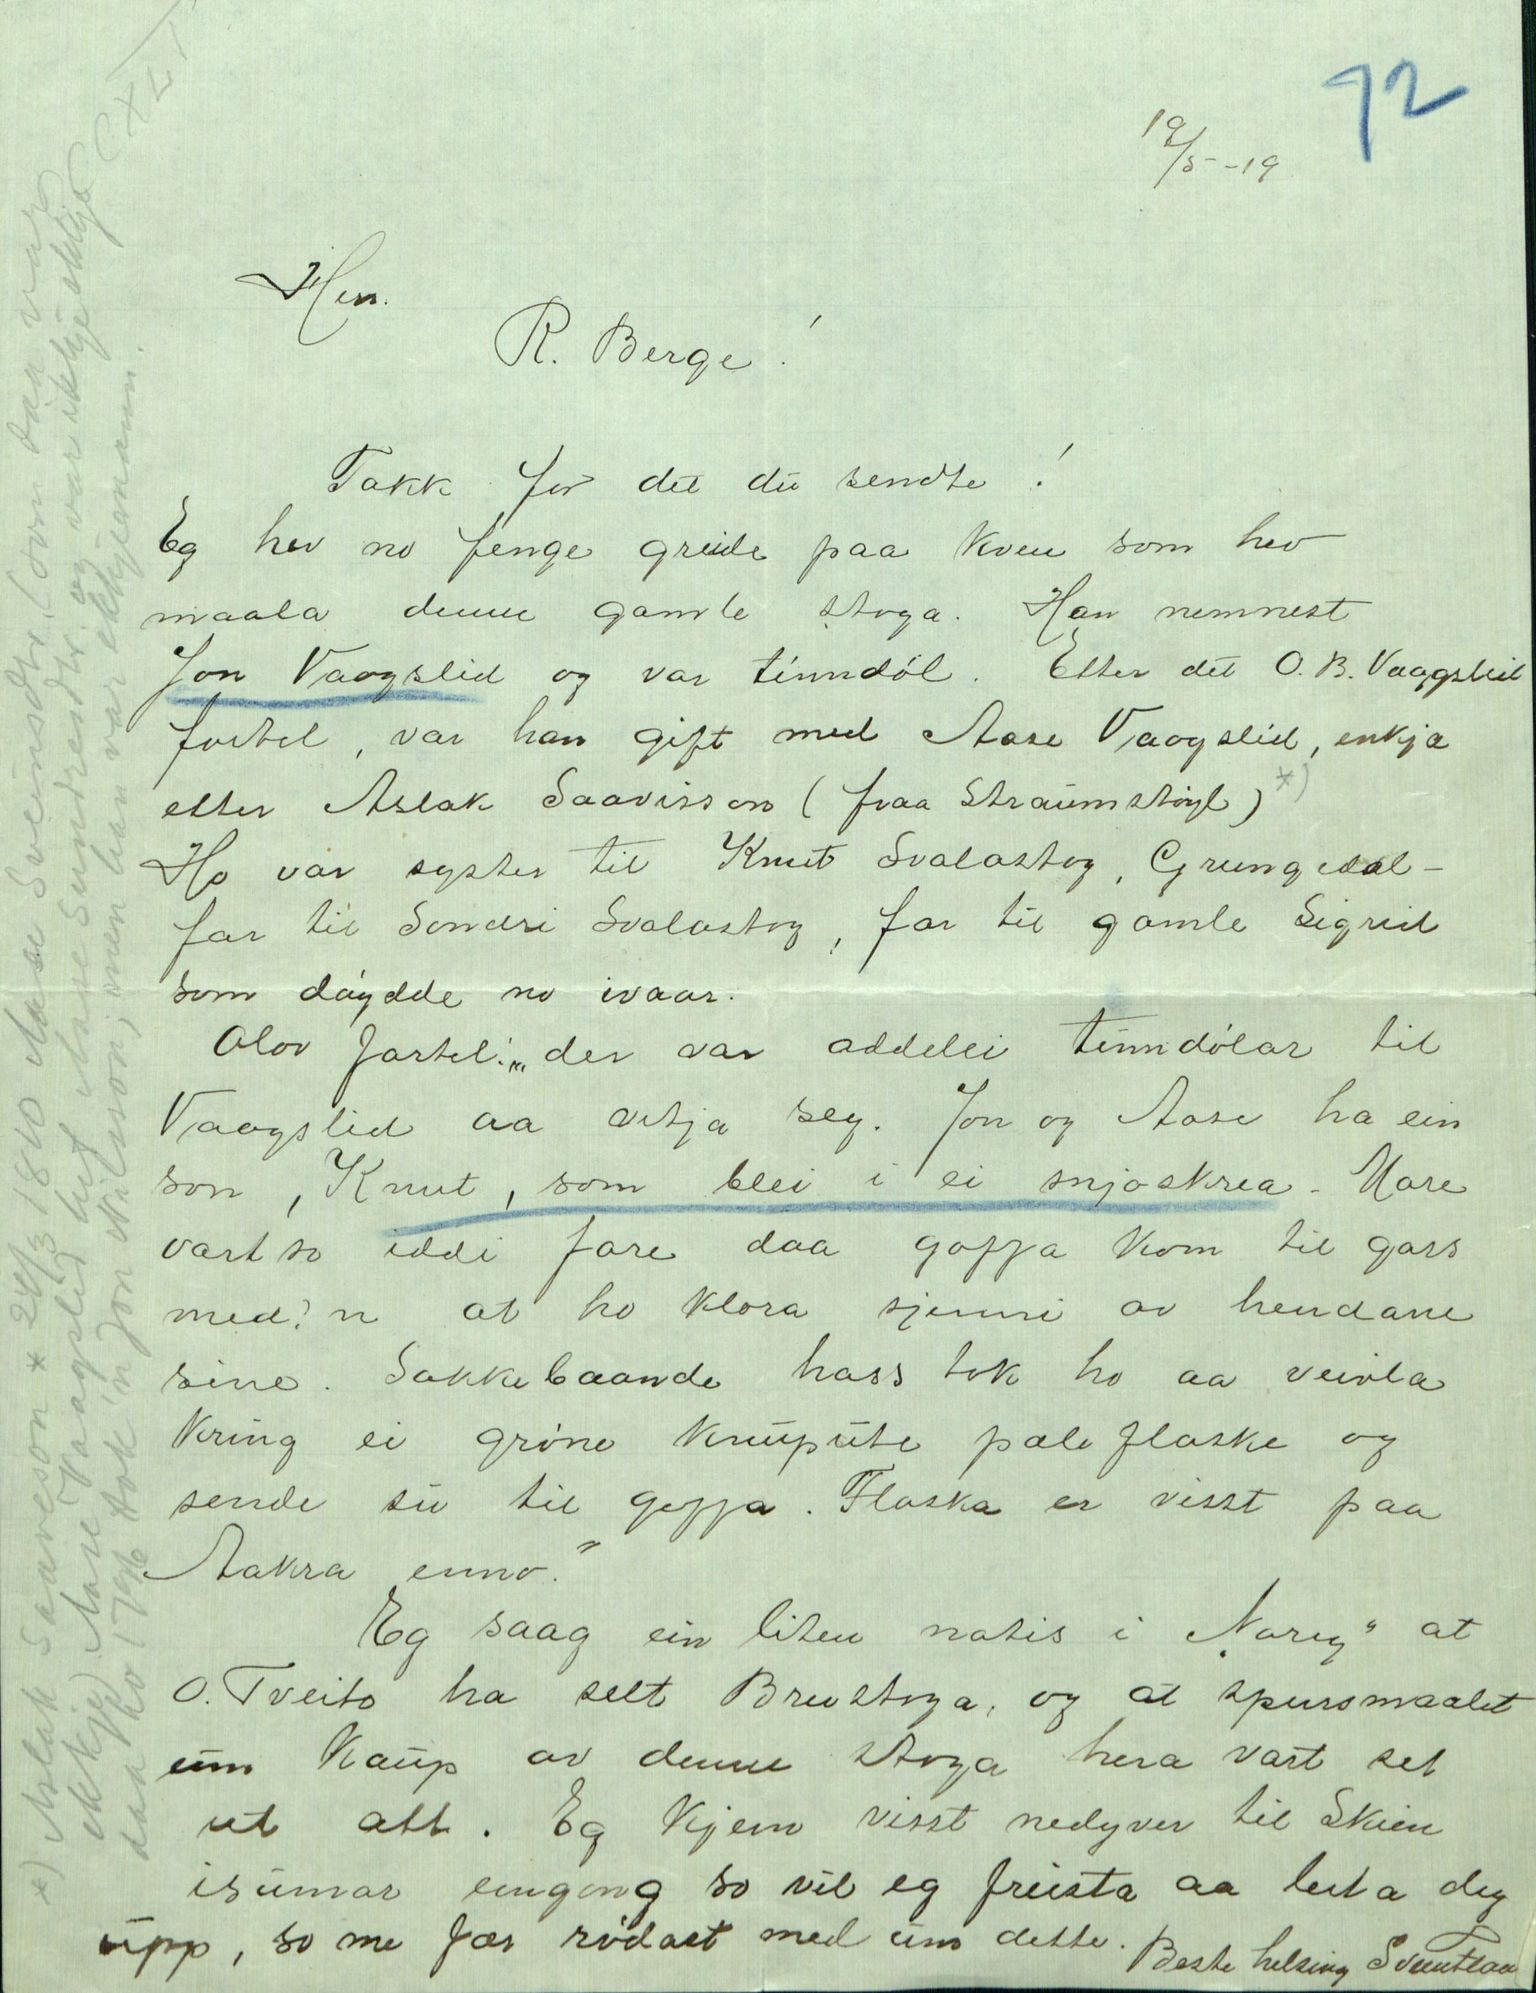 92
19/5-19
Hr.
R. Berge!
Takk for det du sendte!
Eg hev no fenge greide paa kven som hev
maala denne gamle stoga. Han nemnest
Jon Vaagslid og var tinndøl. Etter det O. B. Vaagslid
fortel, var han gift med Aase Vaagslid, enkja
etter Aslak Saavisson (fraa Straumstøyl) *)
Ho var syster til Knut Svalastog, Grungedal –
far til Sondri Svalastog, far til gamle Sigrid
som døydde no ivaar.
Olov fortel: „der var addelei tinndølar til
Vaagslid aa vitja seg. Jon og Aase ha ein
son, Knut, som blei i ei snjoskrea. More
vart so iddi fare daa goffa kom til gars
med 'n at ho klora sjinni av hendane
sine. Sokkebaande hass tok ho aa veivla
kring ei grøne knupute pæleflaske og
sende su til goffa. Flaska er visst paa
Aakra enno."
Eg saag ein liten notis i „Norig" at
O. Tveito ha selt Breistoga, og at spursmaalet
um kaup av denne stoga hera vart set
ut att. Eg kjem visst nedyver til Skien
isumar eingong so vil eg freista aa leita deg
upp, so me fær rødast med um dette. Beste helsing
*) Aslak Saaveson * 24/3 1810 Aase Sveinsdtr. (ovn daa var
ekkje) Aase Vaagslid het Aase Sundresdtr. og var ikkje ekkje
daa ho 1796 tok 'n Jon Nilsson; men han var ekkjemann.